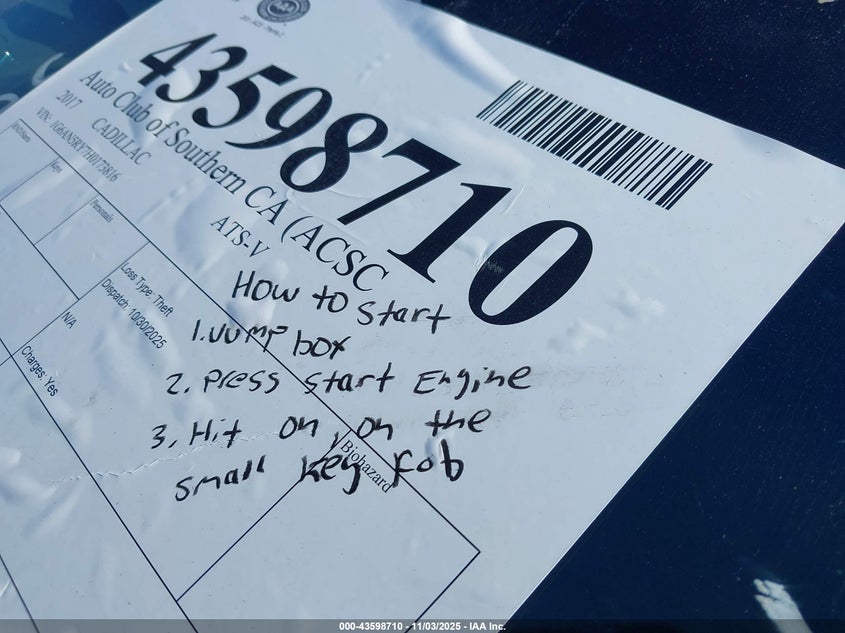 43598710
Auto Club of Southern CA (ACSC
2017 CADILLAC ATS-V
Keys
Personals
Loss Type: Theft
Dispatch: 10/30/2025
N/A
Charges: Yes
Biohazard
How to Start
1. Jump box
2. Press Start Engine
3. Hit on, on the
small key fob
000-43598710 - 11/03/2025 - IAA Inc.